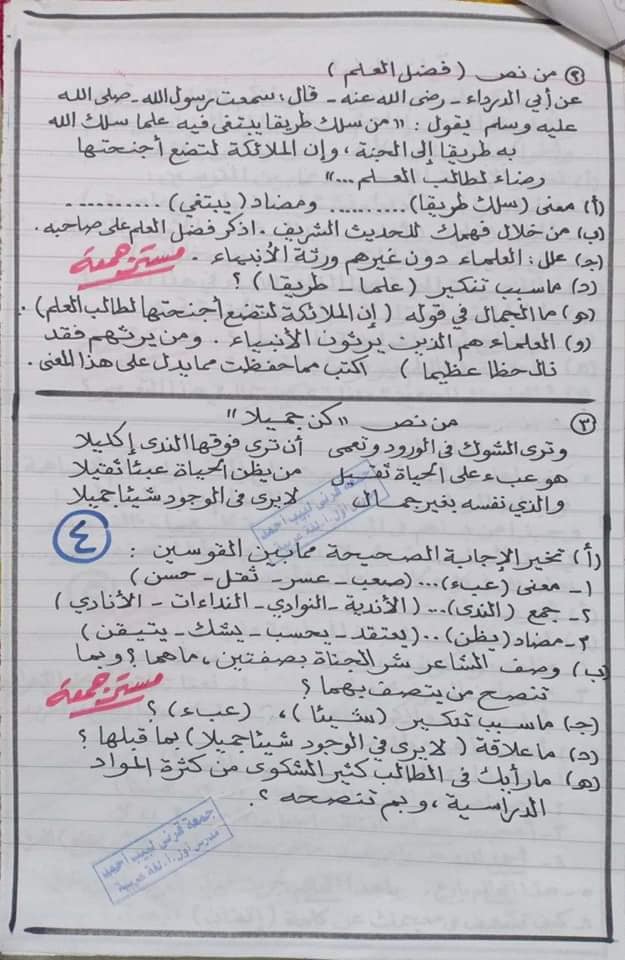 ② من نص (فضل العلم)
عن أبي الدرداء - رضى الله عنه - قال: سمعت رسول الله - صلى الله
عليه وسلم يقول: «من سلك طريقا يبتغى فيه علما سلك الله
به طريقا إلى الجنة، وإن الملائكة لتضع أجنحتها
رضاء لطالب العلم ...»
(أ) معنى (سلك طريقا) .......... ومضاد (يبتغي) ..........
(ب) من خلال فهمك للحديث الشريف. اذكر فضل العلم على صاحبه.
(ج) علل: العلماء دون غيرهم ورثة الأنبياء.
مستر جمعة
(د) ما سبب تنكير (علما - طريقا)؟
(هـ) ما الجمال في قوله (إن الملائكة لتضع أجنحتها لطالب العلم).
(و) العلماء هم الذين يرثون الأنبياء. ومن يرثهم فقد
نال حظا عظيما) اكتب مما حفظت مما يدل على هذا المعنى.
③ من نص «كن جميلا»
وترى الشوك فى الورود وتعمى أن ترى فوقها الندى إكليلا
هو عبء على الحياة ثقيل من يظن الحياة عبئا ثقيلا
والذى نفسه بغير جمال لا يرى فى الوجود شيئا جميلا
جمعة قرنى لبيب احمد
مدرس أول أ. لغة عربية
٤
(أ) تخير الإجابة الصحيحة مما بين القوسين:
١- معنى (عبء) ... (صعب - عسر - ثقل - حسن)
٢- جمع (الندى) ... (الأندية - النوادى - النداءات - الأنادي)
٣- مضاد (يظن) ... (يعتقد - يحسب - يشك - يتيقن)
(ب) وصف الشاعر شر الجناة بصفتين، ما هما؟ وبما
تنصح من يتصف بهما؟
مستر جمعة
(ج) ما سبب تنكير (شيئا)، (عبء)؟
(د) ما علاقة (لا يرى في الوجود شيئا جميلا) بما قبلها؟
(هـ) ما رأيك فى الطالب كثير الشكوى من كثرة المواد
الدراسية، وبم تنصحه؟
جمعة قرنى لبيب احمد
مدرس أول أ. لغة عربية